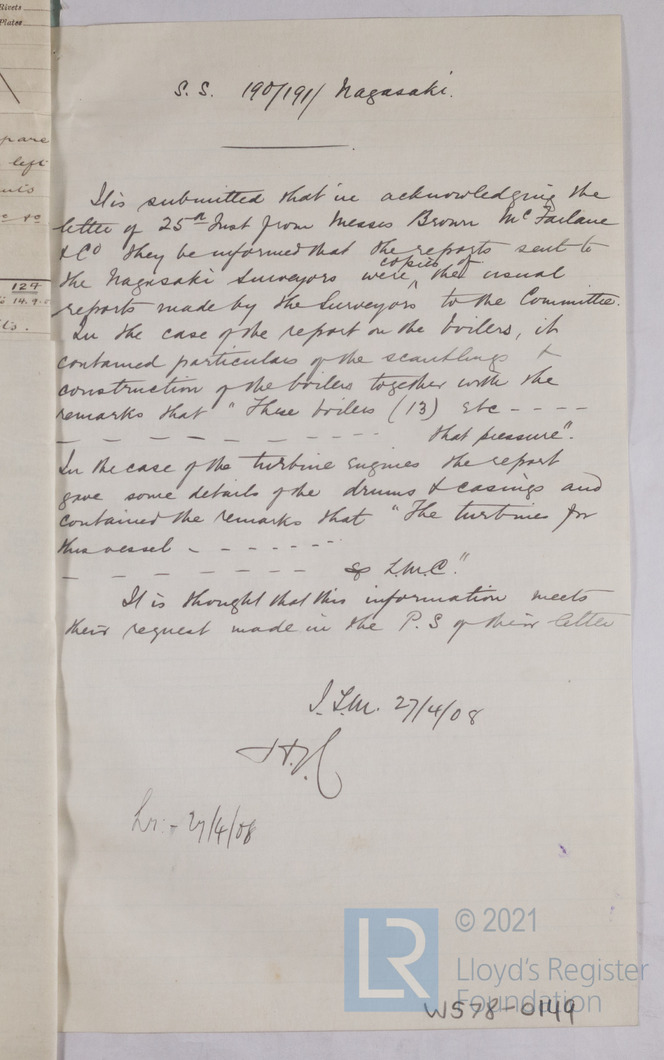 Rivets
Plates
pare
left
127
14.9.0
S.S. 190/191/ Nagasaki.
It is submitted that in acknowledging the
letter of 25th Inst from Messrs Brown McFarlane
& Co they be informed that the reports sent to
the Nagasaki Surveyors were copies of the usual
reports made by the Surveyors to the Committee.
In the case of the report on the boilers, it
contained particulars of the scantlings &
construction of the boilers together with the
remarks that "These boilers (13) etc - - - -
- - - - - - - - - - that pressure".
In the case of the turbine Engines the report
gave some details of the drums & casings and
contained the remarks that "The turbines for
this vessel - - - - - - -
- - - - - - - - L.M.C."
It is thought that this information meets
their request made in the P.S of their letter
27/4/08
Lr:- 27/4/08
LR
© 2021
Lloyd's Register
Foundation
W578-0149